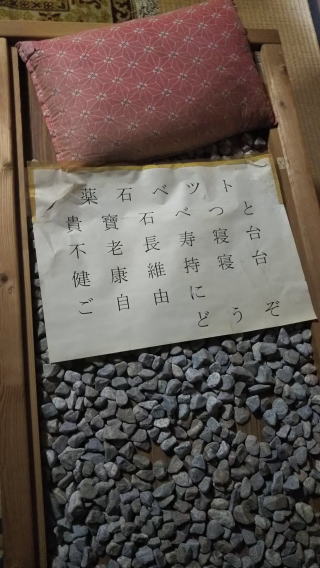 薬石ベツト
貴寶石べつと
不老長寿寝台
健康維持寝台
ご自由に
どうぞ